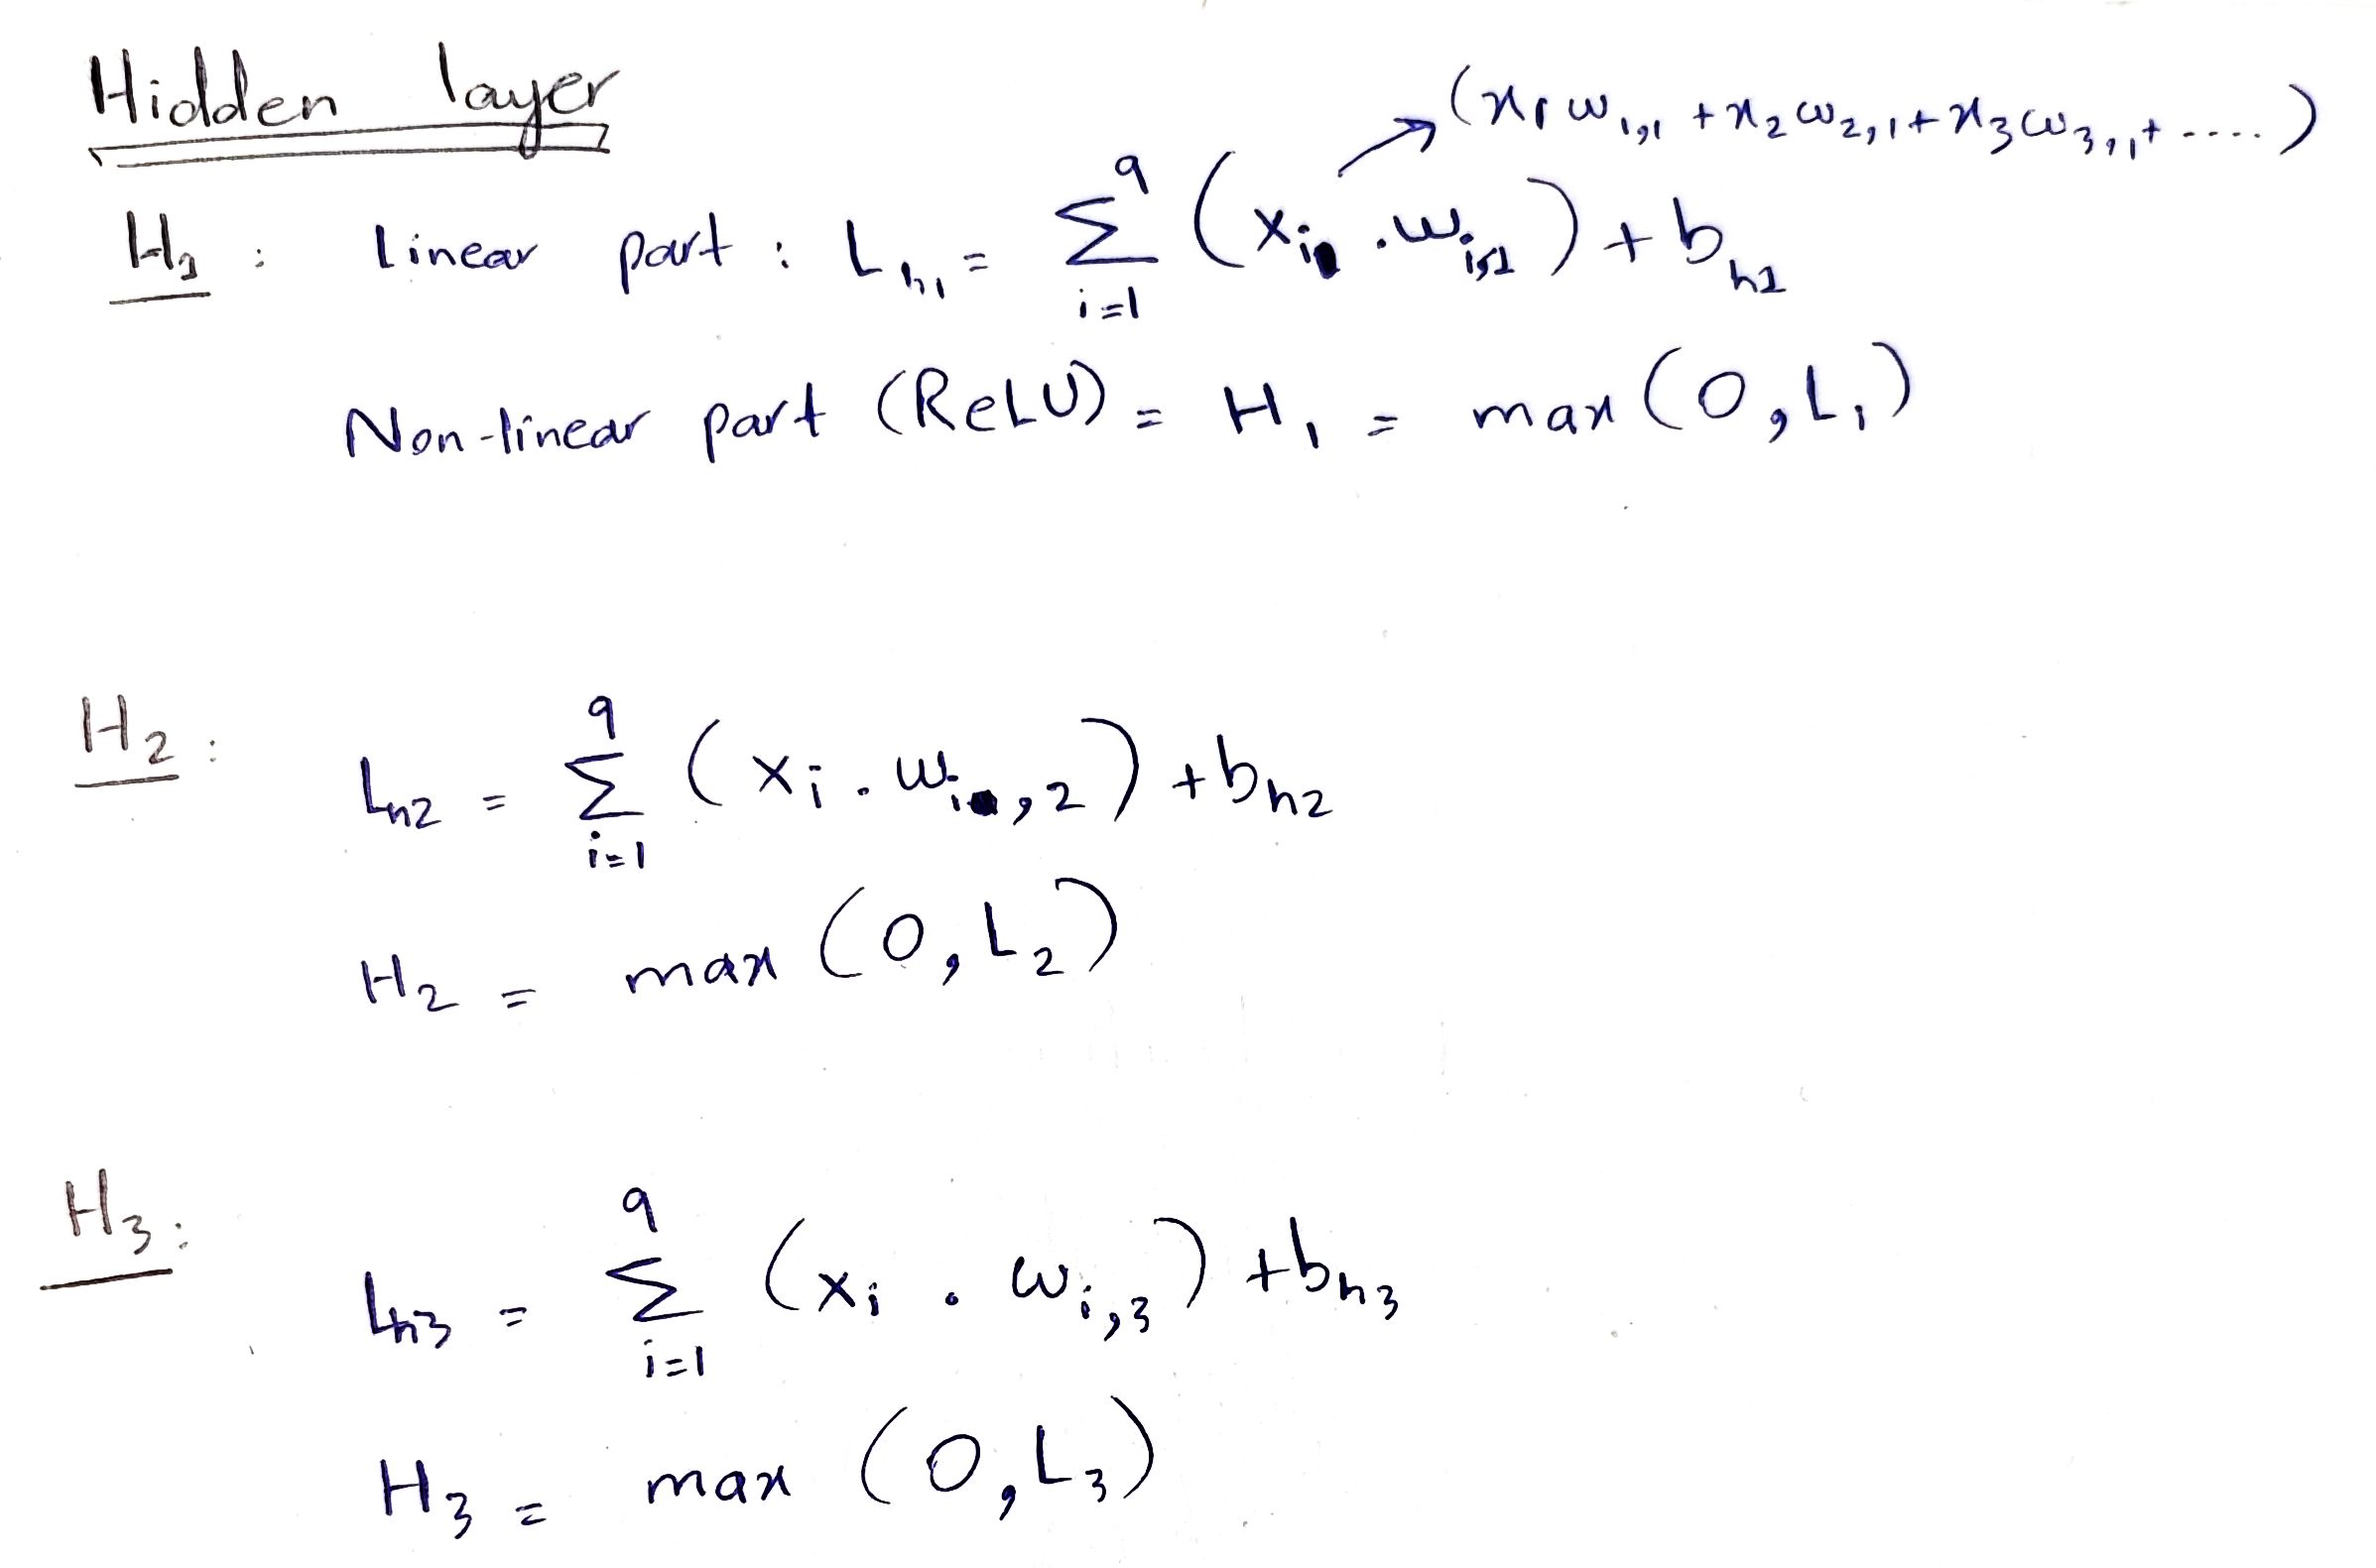 Hidden layer
(x₁w₁,₁ + x₂w₂,₁ + x₃w₃,₁ + ....)
H₁ : Linear part : Lₕ₁ = Σᵢ₌₁⁹ (xᵢ . wᵢ,₁) + bₕ₁
Non-linear part (ReLU) = H₁ = max (0, L₁)
H₂ : Lₕ₂ = Σᵢ₌₁⁹ (xᵢ . wᵢ,₂) + bₕ₂
H₂ = max (0, L₂)
H₃ : Lₕ₃ = Σᵢ₌₁⁹ (xᵢ . wᵢ,₃) + bₕ₃
H₃ = max (0, L₃)